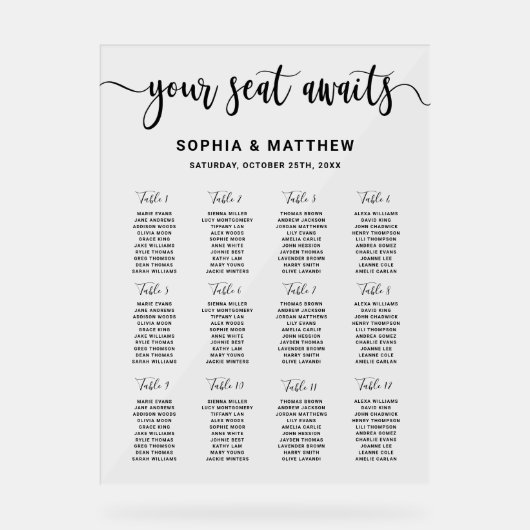 your seat awaits
SOPHIA & MATTHEW
SATURDAY, OCTOBER 25TH, 20XX
Table 1
MARIE EVANS
JANE ANDREWS
ADDISON WOODS
OLIVIA MOON
GRACE KING
JAKE WILLIAMS
RYLIE THOMAS
GREG THOMSON
DEAN THOMAS
SARAH WILLIAMS
Table 2
SIENNA MILLER
LUCY MONTGOMERY
TIFFANY LAN
ALEX WOODS
SOPHIE MOOR
ANNE WHITE
JOHNIE BEST
KATHY LAM
MARY YOUNG
JACKIE WINTERS
Table 3
THOMAS BROWN
ANDREW JACKSON
JORDAN MATTHEWS
LILY EVANS
AMELIA CARLIE
JOHN HESSION
JAYDEN THOMAS
LAVENDER BROWN
HARRY SMITH
OLIVE LAVANDI
Table 4
ALEXA WILLIAMS
DAVID KING
JOHN CHADWICK
HENRY THOMPSON
LILI THOMPSON
ANDREA GOMEZ
CHARLIE THOMPSON
JOANNE LEE
LEANNE COLE
AMELIE CARLAN
Table 5
MARIE EVANS
JANE ANDREWS
ADDISON WOODS
OLIVIA MOON
GRACE KING
JAKE WILLIAMS
RYLIE THOMAS
GREG THOMSON
DEAN THOMAS
SARAH WILLIAMS
Table 6
SIENNA MILLER
LUCY MONTGOMERY
TIFFANY LAN
ALEX WOODS
SOPHIE MOOR
ANNE WHITE
JOHNIE BEST
KATHY LAM
MARY YOUNG
JACKIE WINTERS
Table 7
THOMAS BROWN
ANDREW JACKSON
JORDAN MATTHEWS
LILY EVANS
AMELIA CARLIE
JOHN HESSION
JAYDEN THOMAS
LAVENDER BROWN
HARRY SMITH
OLIVE LAVANDI
Table 8
ALEXA WILLIAMS
DAVID KING
JOHN CHADWICK
HENRY THOMPSON
LILI THOMPSON
ANDREA GOMEZ
CHARLIE THOMPSON
JOANNE LEE
LEANNE COLE
AMELIE CARLAN
Table 9
MARIE EVANS
JANE ANDREWS
ADDISON WOODS
OLIVIA MOON
GRACE KING
JAKE WILLIAMS
RYLIE THOMAS
GREG THOMSON
DEAN THOMAS
SARAH WILLIAMS
Table 10
SIENNA MILLER
LUCY MONTGOMERY
TIFFANY LAN
ALEX WOODS
SOPHIE MOOR
ANNE WHITE
JOHNIE BEST
KATHY LAM
MARY YOUNG
JACKIE WINTERS
Table 11
THOMAS BROWN
ANDREW JACKSON
JORDAN MATTHEWS
LILY EVANS
AMELIA CARLIE
JOHN HESSION
JAYDEN THOMAS
LAVENDER BROWN
HARRY SMITH
OLIVE LAVANDI
Table 12
ALEXA WILLIAMS
DAVID KING
JOHN CHADWICK
HENRY THOMPSON
LILI THOMPSON
ANDREA GOMEZ
CHARLIE THOMPSON
JOANNE LEE
LEANNE COLE
AMELIE CARLAN